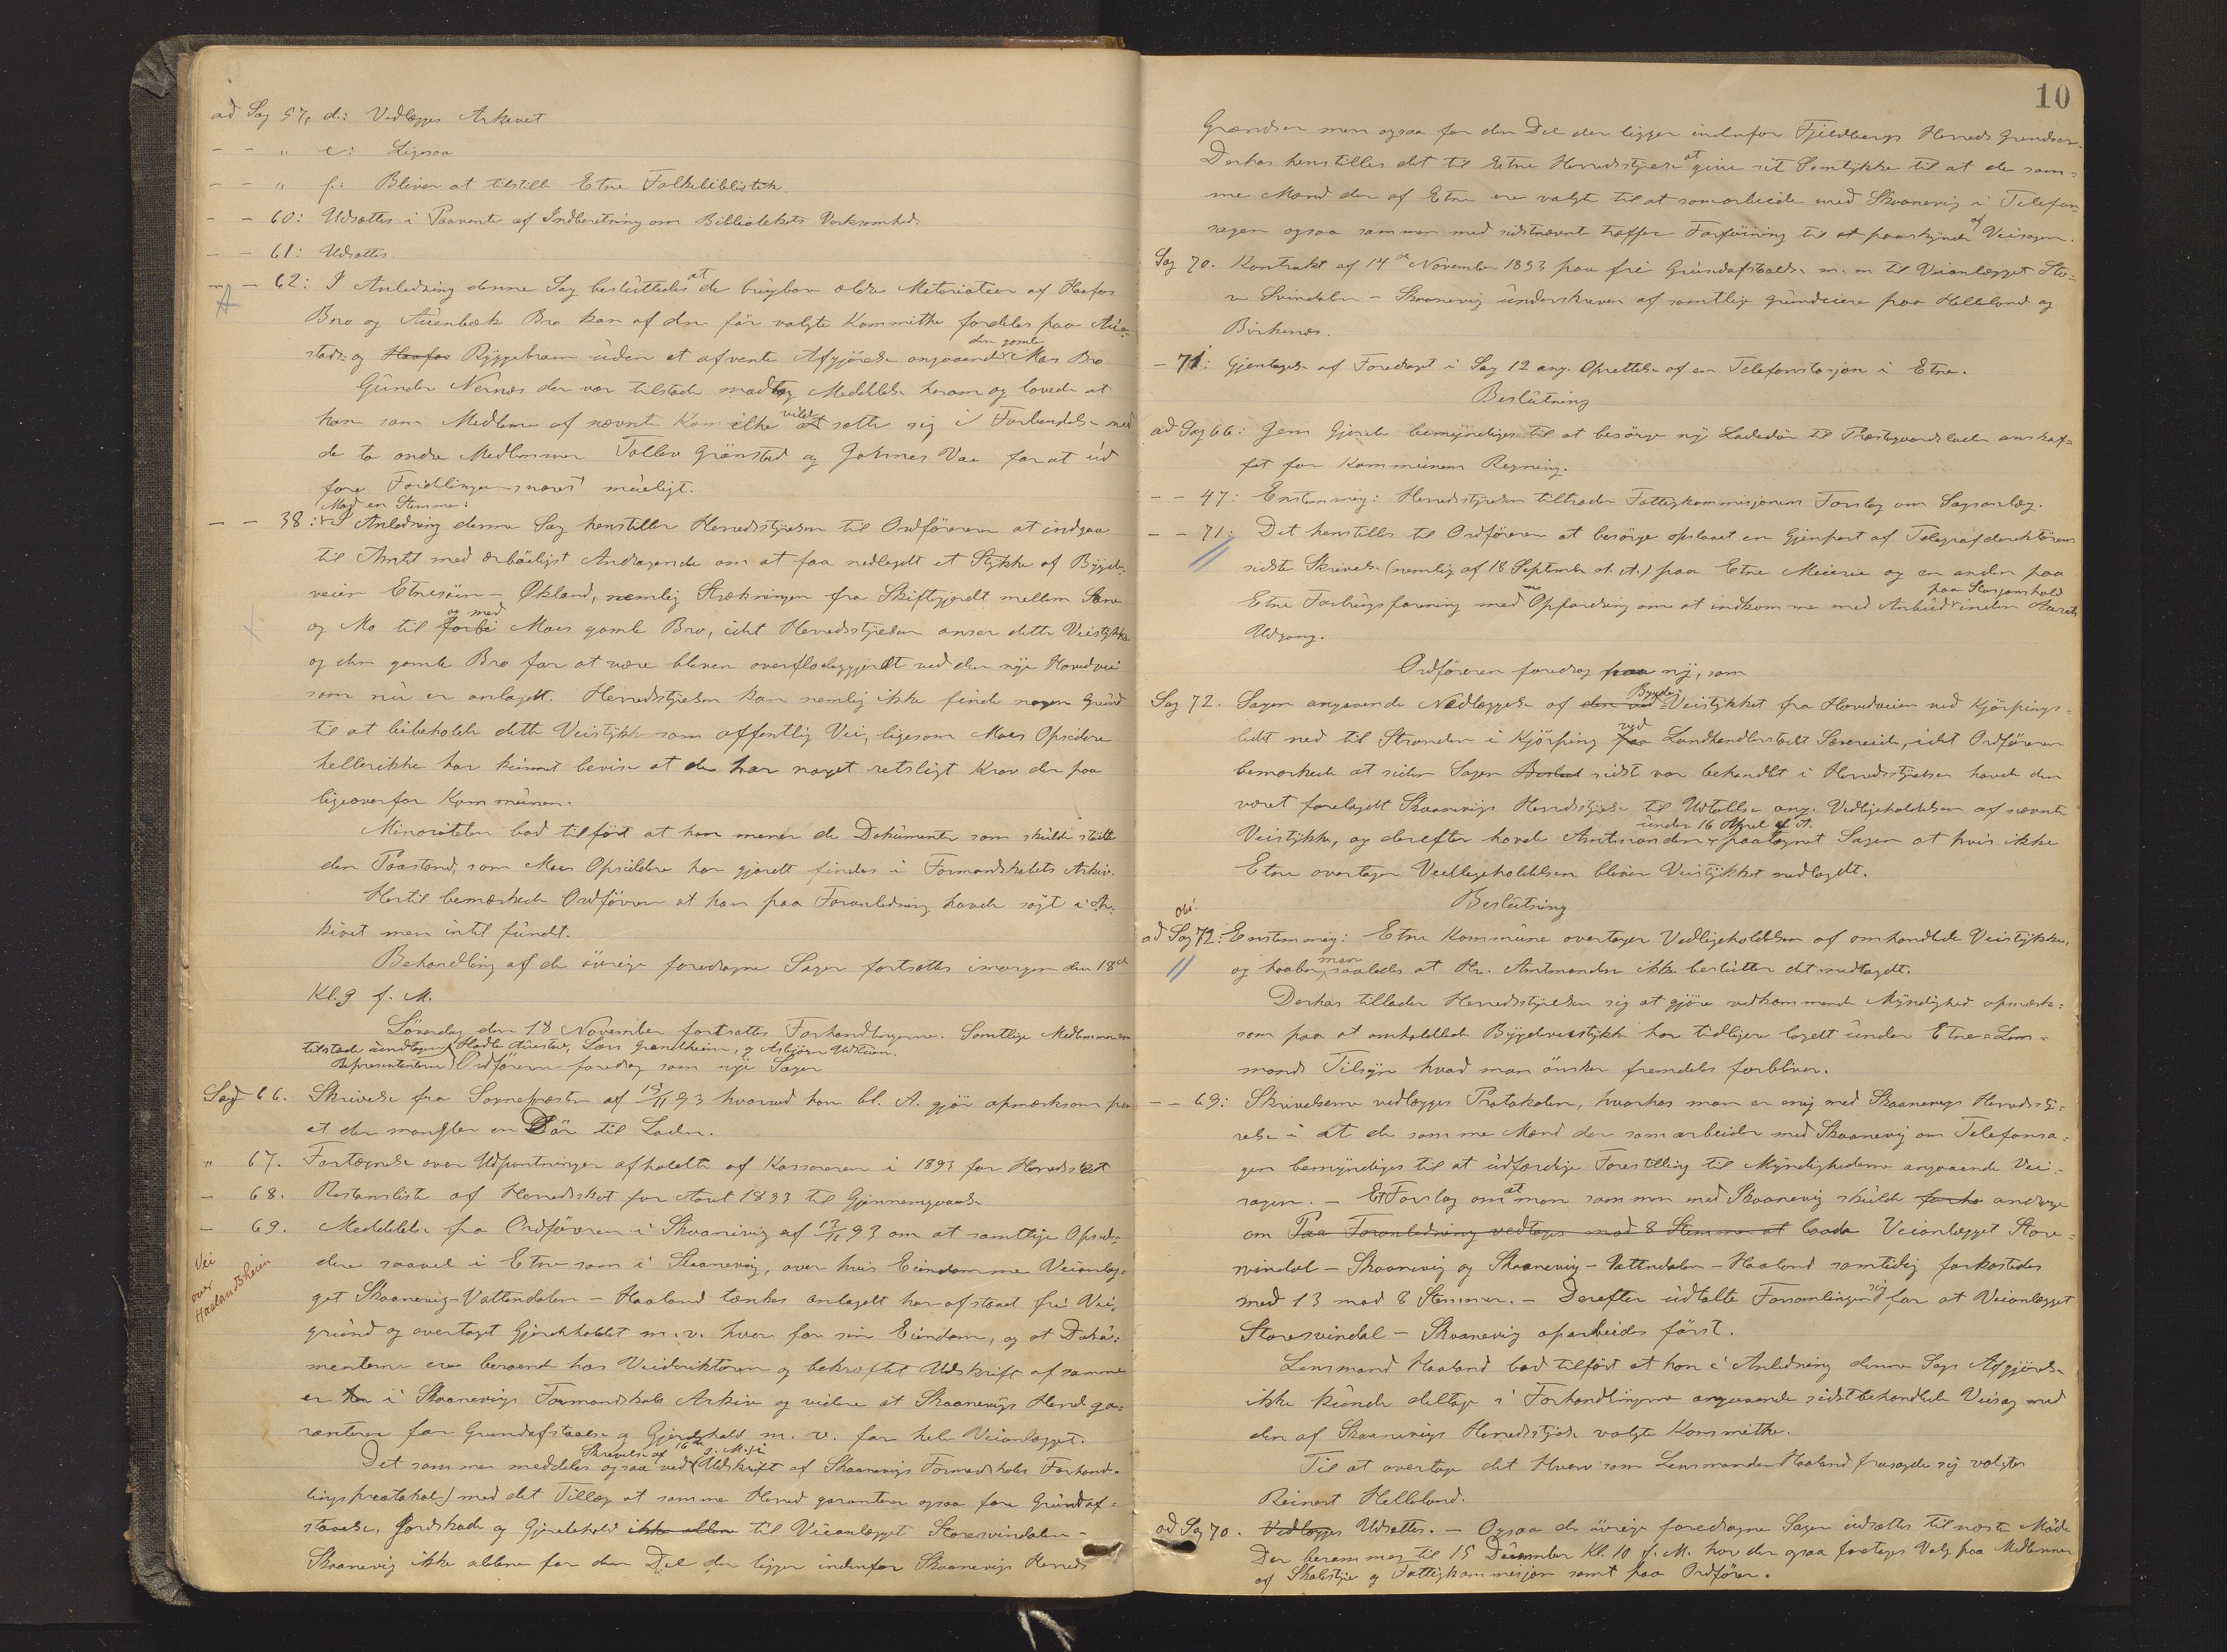 ad Sag 57, d.: Vedlægges Arkivet
- - " e: Ligesaa
- - " f.: Bliver at tilstille Etne Folkebibliotek.
- - 60: Udsættes i Paavente af Indberetning om Bibliotekets Verksomhed.
- - 61: Udsættes.
- - 62: I Anledning denne Sag besluttedes at de brugbare ældre Materialier af Haafos
Bro og Auenbæk Bro kan af den før valgte Kommithe fordeles paa Aua-
stads og Haafos Ryggebroen uden at afvente Afgjørelse angaaende den gamle Maes Bro
Gunder Nernæs der var tilstede modtog Meddelelse herom og lovede at
han som Medlem af nævnte Komithe vilde sætte sig i Forbindelse med
de to andre Medlemmer Tollev Grønstad og Johnes Vae for at ud
føre Fordelingen snarest mueligt.
Mod en Stemme:
- - 38: I Anledning denne Sag henstiller Herredsstyrelsen til Ordføreren at indgaa
til Amtet med ærbødigst Andragende om at faa nedlagdt et Stykke af Bygde-
veien Etnesjøen - Økland, nemlig Strekningen fra Skiftegjerdt mellem Sæve
og Mo til forbi og med Moes gamle Bro, idet Herredsstyrelsen anser dette Veistykke
og den gamle Bro for at være bleven overflødiggjordt ved den nye Hovedvei
som nu er anlagdt. Herredsstyrelsen kan nemlig ikke finde nogen Grund
til at bibeholde dette Veistykke som offentlig Vei, ligesom Moes Opsiddere
hellerikke har kunnet bevise at de har noget retsligt Krav der paa
ligeoverfor Kommunen.
Minoriteten bad tilført at han mener de Dokumenter som skulde støtte
den Paastand, som Moes Opsiddere har gjordt findes i Formandskabets Arkiv.
Hertil bemærkede Ordføreren at han paa Foranledning havde søgt i Ar-
kivet men intet fundt.
Behandling af de øvrige foredragne Sager fortsættes imorgen den 18de
Kl. 9 f. M.
Løverdag den 18 November fortsattes Forhandlingerne. Samtlige Medlemmer var
tilstede undtagen Hadle Austue, Lars Grandheim, og Asbjørn Udtuen.
Repræsentanterne Ordføreren foredrog som nye Sager
Sag 66. Skrivelse fra Sognepræsten af 15/11 93 hvorved han bl. A. gjør opmærksom paa
at der mangler en Dør til Laden.
" 67. Fortegnelse over Udpantninger afholdte af Kassereren i 1893 for Herredsskat
- 68. Restanseliste af Herredsskat for Aaret 1893 til Gjennemgaaelse
- 69. Meddelelse fra Ordføreren i Skaanevig af 13/11 93 om at samtlige Opsid-
dere saavel i Etne som i Skaanevig, over hvis Eiendomme Veianlæg-
get Skaanevig-Vattendalen - Haaland tænkes anlagdt har afstaaet fri Vei-
grund og overtaget Gjerdeholdet m. v. hver for sin Eiendom, og at Doku-
menterne ere beroende hos Veidirektøren og bekræftet Udskrift af samme
er i Skaanevigs Formandskabs Arkiv og videre at Skaanevigs Herred ga-
ranterer for Grundafstaaelse og Gjerdehold m. v. for hele Veianlægget.
Det sammen meddeles ogsaa ved (Skrivelse af 16de d. M. i Udskrift af Skaanevigs Formandskabs Forhand-
lingsprotokol) med det Tillæg at samme Herred garanterer ogsaa for Grundaf-
staaelse, Jordskade og Gjerdehold ikke allene til Veianlægget Storesvindalen -
Skaanevig ikke allene for den Del der ligger indenfor Skaanevigs Herreds
Vei
over
Haalandsheien
10
Grændser men ogsaa for den Del der ligger indenfor Fjeldbergs Herreds Grændser.
Derhos henstilles det til Etne Herredsstyrelse at give sit Samtykke til at de sam-
me Mænd der af Etne ere valgte til at samarbeide med Skaanevig i Telefon-
sagen ogsaa sammen med sidstnævnte træffer Forføining til at paaskynde af Veisagen.
Sag 70. Kontrakt af 14de November 1893 paa fri Grundafstaaelse m. m til Veianlægget Sto-
re Svindalen - Skaanevig underskreven af samtlige grundeiere paa Helleland og
Birkenes.
- 71: Gjentagelse af Foredraget i Sag 12 ang. Oprettelse af en Telefonstasjon i Etne.
Beslutning
ad Sag 66: Jens Gjerde bemyndiges til at besørge ny Ladedør til Præstegaardsladen anskaf-
fet for Kommunens Regning.
- - 47: Enstemmig: Herredsstyrelsen tiltræder Fattigkommisjonens Forslag om Sagsanlæg.
- - 71: Det henstilles til Ordføreren at besørge opslaaet en Gjenpart af Telegrafdirektørens
sidste Skrivelse (nemlig af 18 September d. A.) paa Etne Meierie og en anden paa
Etne Forbrugsforening med Opfordring om at indkomme med Anbud paa Stasjonshold inden Aarets
Udgang.
Ordføreren foredrog paa ny, som
Sag 72. Sagen angaaende Nedlæggelse af den ved Bygde- Veistykket fra Hovedveien ved Kjørpings-
ledet ned til Stranden i Kjørping paa ved Landhandlerstedet Sævareide, idet Ordføreren
bemærkede at siden Sagen sidst var behandlet i Herredsstyrelsen havde den
været forelagdt Skaanevigs Herredsstyrelse til Udtalelse ang. Vedligeholdelsen af nævnte
Veistykke, og derefter havde Amtmanden under 16 April d. A. paategnet Sagen at hvis ikke
Etne overtager Vedligeholdelsen bliver Veistykket nedlagdt.
Beslutning
Obs!
ad Sag 72: Enstemmig: Etne Kommune overtager Vedligeholdelsen af omhandlede Veistykke,
og haaber man saaledes at Hr. Amtmanden ikke beslutter det nedlagdt.
Derhos tillader Herredsstyrelsen sig at gjøre vedkommende Myndighed opmærk-
som paa at omhandlede Bygdeveistykke har tidligere lagdt under Etne Lens-
mands Tilsyn hvad man ønsker fremdeles forbliver.
- - 69: Skrivelserne vedlægges Protokolen, hvorhos man er enig med Skaanevigs Herredssty-
relse i at de samme Mænd der samarbeider med Skaanevig om Telefonsa-
gen bemyndiges til at udfærdige Forestilling til Myndighederne angaaende Vei-
sagen. - Et Forslag om at man sammen med Skaanevig skulde andrage
om Paa Foranledning vedtages mod 8 Stemmer at baade Veianlægget Store-
svindal - Skaanevig og Skaanevig - Vattndalen - Haaland samtidig forkastedes
med 13 mod 8 Stemmer. - Derefter udtalte Forsamlingen sig for at Veianlægget
Storesvindal - Skaanevig oparbeides først.
Lensmand Haaland bad tilført at han i Anledning denne Sags Afgjørelse
ikke kunde deltage i Forhandlingerne angaaende sidstbehandlede Veisag med
den af Skaanevigs Herredsstyrelse valgte Kommithe.
Til at overtage det Hverv som Lensmanden Haaland frasagde sig valgtes
Reinert Helleland.
ad Sag 70. Vedlægges Udsættes. - Ogsaa de øvrige foredragne Sager udsættes til næste Møde
Der berammes til 15 December Kl. 10 f. M. hvor der ogsaa foretages Valg paa Medlemmer
af Skolestyre og Fattigkommisjon samt paa Ordfører.